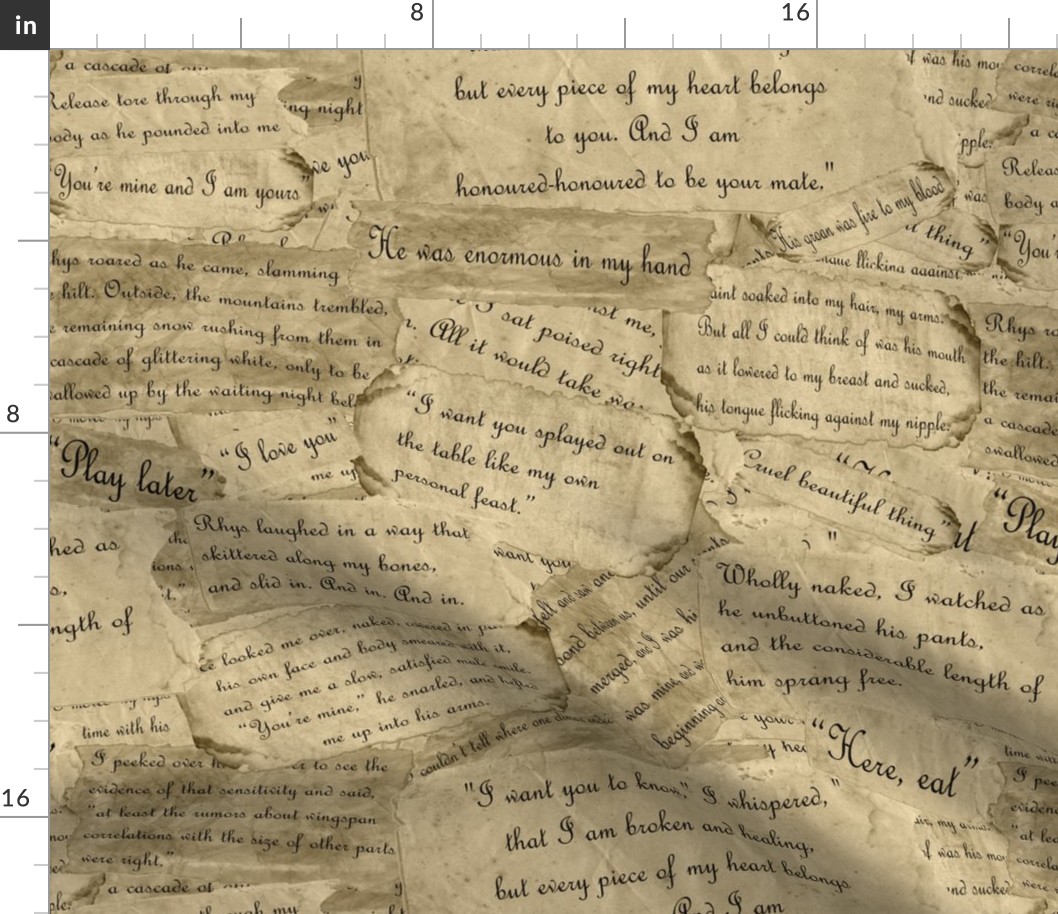 in
8
16
8
16
a cascade of
Release tore through my
body as he pounded into me
"You're mine and I am yours"
ing night
ve you
but every piece of my heart belongs
to you. And I am
honoured-honoured to be your mate."
f was his mou
and sucked
pple.
correl
were ri
a co
Releas
body a
"You'
was
His groan was fire to my blood
thing"
ngue flicking against
He was enormous in my hand
Rhys roared as he came, slamming
hilt. Outside, the mountains trembled,
e remaining snow rushing from them in
cascade of glittering white, only to be
allowed up by the waiting night bel
I sat poised right
All it would take wa
st me,
aint soaked into my hair, my arms.
But all I could think of was his mouth
as it lowered to my breast and sucked,
his tongue flicking against my nipple.
Rhys ro
the hill.
the remai
a cascade
swallowed
"Play later"
"I love you"
me up
"I want you splayed out on
the table like my own
personal feast."
Cruel beautiful thing"
"Play
hed as
ngth of
Rhys laughed in a way that
skittered along my bones,
and slid in. And in. And in.
want you
felt and saw and
bond between us, until our
merged, and I was hi
was mine, and w
beginning of
Wholly naked, I watched as
he unbuttoned his pants,
and the considerable length of
him sprang free.
e looked me over, naked, covered in pai
his own face and body smeared with it,
and give me a slow, satisfied male smile.
"You're mine," he snarled, and helped
me up into his arms.
couldn't tell where one
time with his
e your
y hea
"Here, eat"
time with
I peeked over h
er to see the
evidence of that sensitivity and said,
"at least the rumors about wingspan
correlations with the size of other parts
were right."
"I want you to know," I whispered,
that I am broken and healing,
but every piece of my heart belongs
And I am
my arms
f was his mou
and sucked
I pee
eviden
"at lea
correla
were
a cascade of